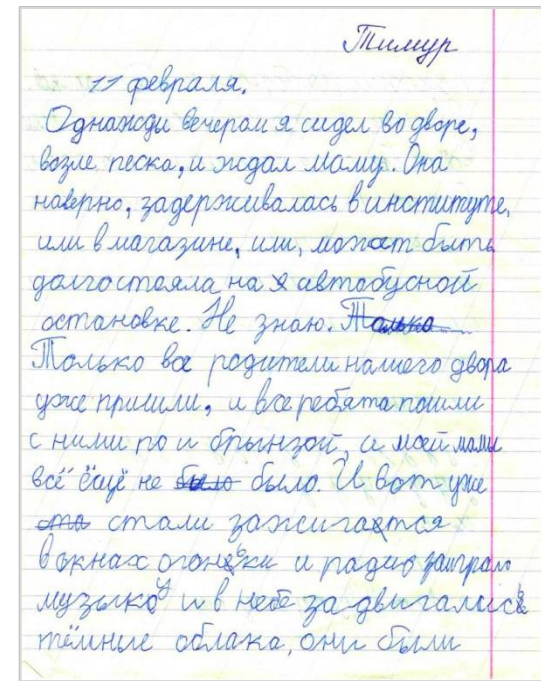 Тимур
11 февраля.
Однажди вечером я сидел во дворе,
возле песка, и ждал маму. Она
наверно, задерживалась в институте,
или в магазине, или, может быть
долго стояла на автобусной
остановке. Не знаю. Только
Только все родители нашего двора
уже пришли, и все ребята пошли
с ними по и брынзой, а моей мамы
всё ещё не было было. И вот уже
ста стали зажигатся
в окнах огоньки и радио заиграло
музыку и в небе задвигались
тёмные облака, они были